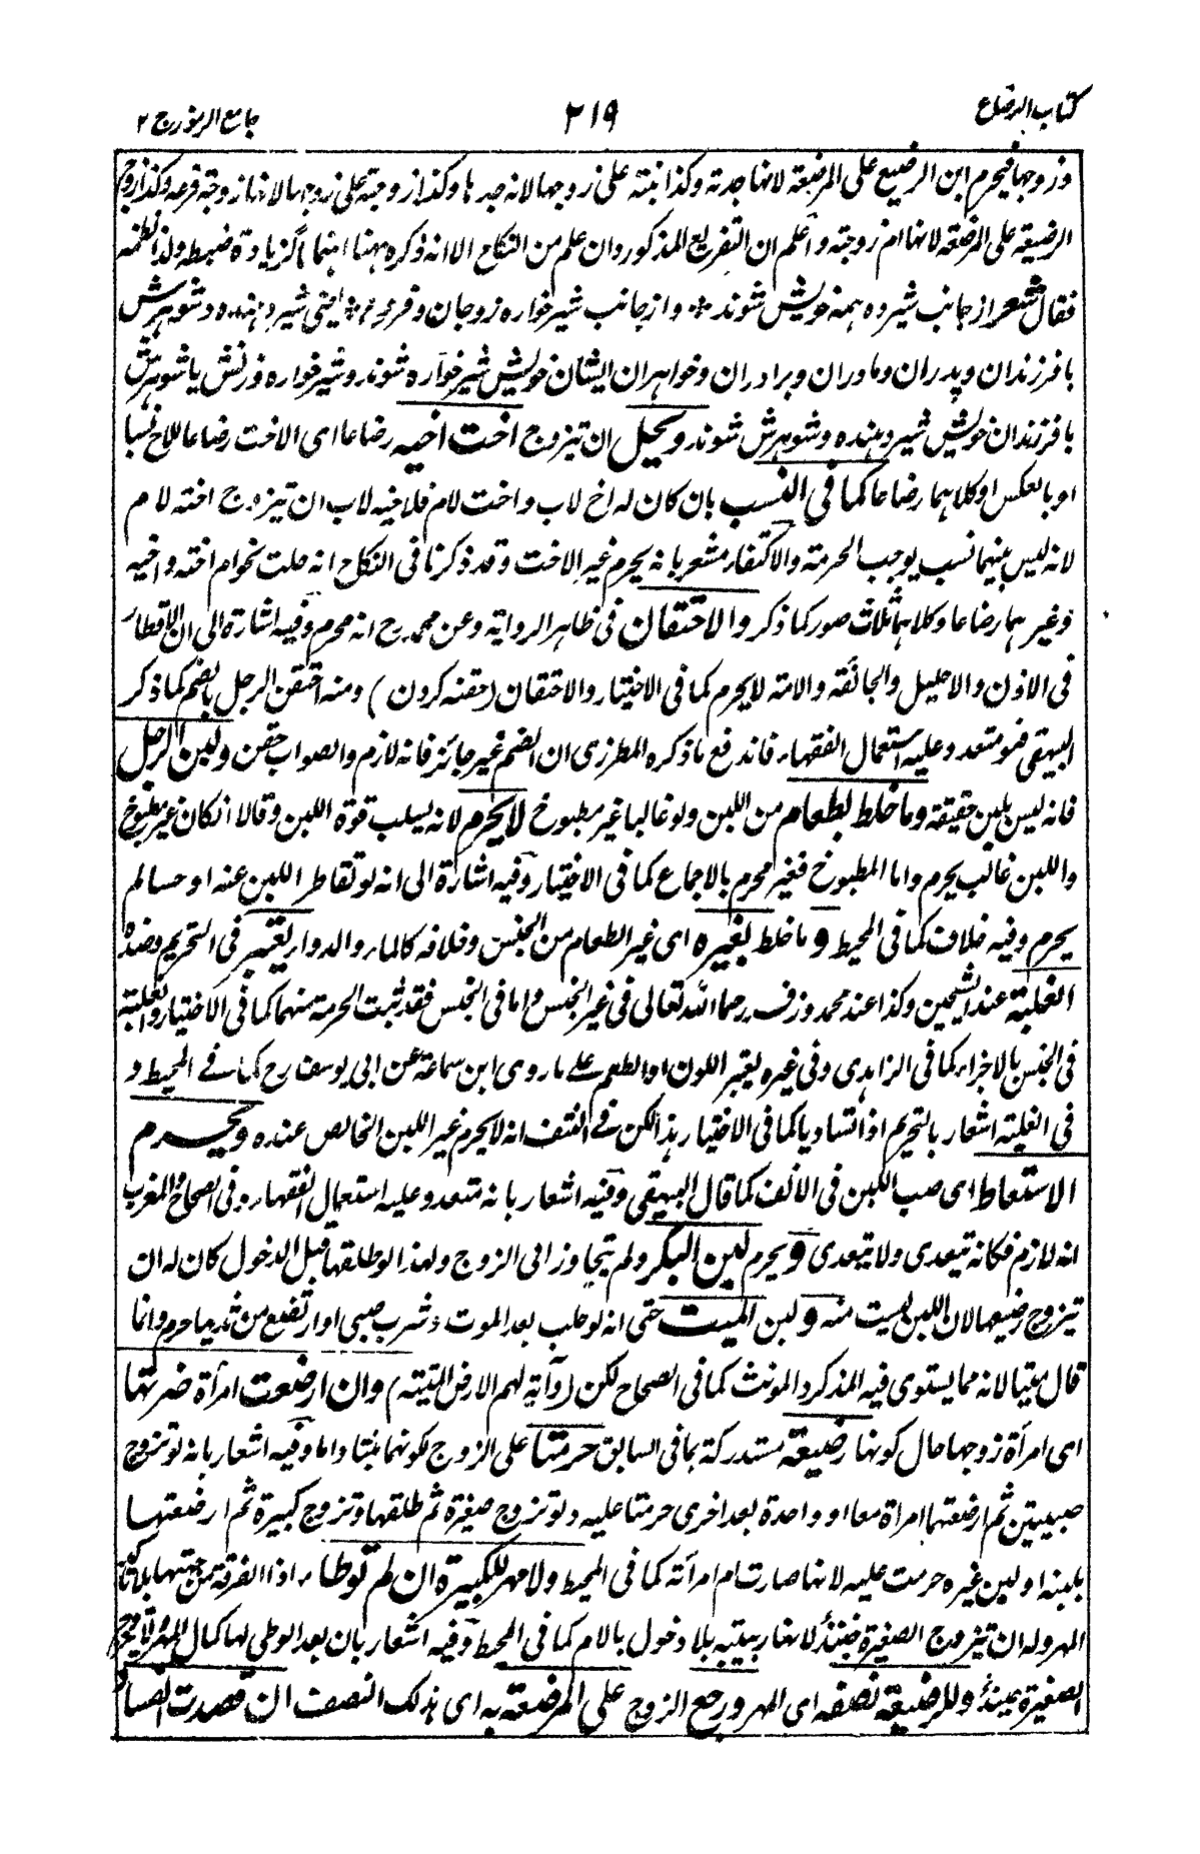 كتاب الرضاع
٣١٩
جامع الرموز ج ٢
وزوجها فيحرم ابن الرضيع على المرضعة لانها جدته وكذا بنته على زوجها لانه جدها وكذا زوجته على زوجها لانها زوجة فرعه وكذا زوج
الرضيعة على المرضعة لانها ام زوجته واعلم ان التفريع المذكور وان علم من النكاح الا انه ذكره ههنا اهتماما لزيادة ضبطه ولذا نظمه
فقال شعر از جانب شيرده همه خويش شوند * واز جانب شيرخواره زوجان وفروع * يعنى شير دهنده وشوهرش
با فرزندان وپدران ومادران وبرادران وخواهران ايشان خويش شيرخواره شوند وشيرخواره وزنش يا شوهرش
با فرزندان خويش شير دهنده وشوهرش شوند ويحل ان يتزوج اخت اخيه رضاعا اى الاخت رضاعا للاخ نسبا
او بالعكس او كلاهما رضاعا كما فى النسب بان كان له اخ لاب واخت لام فلاخيه لاب ان يتزوج اخته لام
لانه ليس بينهما نسب يوجب الحرمة والاكتفاء مشعر بانه يحرم غير الاخت وقد ذكرنا فى النكاح انه حلت نحو ام اخته واخيه
وغيرهما رضاعا وكلاهما ثلاث صور كما ذكر والاحتقان فى ظاهر الرواية وعن محمد رح انه محرم وفيه اشارة الى ان الاقطار
فى الاذن والاحليل والجائفة والآمة لا يحرم كما فى الاختيار والاحتقان (حقنه كردن) ومنه احتقن الرجل بالضم كما ذكر
البيهقى فهو متعد وعليه استعمال الفقهاء فاندفع ما ذكره المطرزى ان الضم غير جائز فانه لازم والصواب حقن ولبن الرجل
فانه ليس بلبن حقيقة وما خلط بطعام من اللبن ولو غالبا غير مطبوخ لا يحرم لانه يسلب قوة اللبن وقالا ان كان غير مطبوخ
واللبن غالب يحرم واما المطبوخ فغير محرم بالاجماع كما فى الاختيار وفيه اشارة الى انه لو تقاطر اللبن عنه او حسا لم
يحرم وفيه خلاف كما فى المحيط وما خلط بغيره اى غير الطعام من الجنس وخلافه كالماء والدواء يعتبر فى التحريم وضده
الغلبة عند الشيخين وكذا عند محمد وزفر رحمهما الله تعالى فى غير الجنس واما فى الجنس فقد ثبت الحرمة منهما كما فى الاختيار والغلبة
فى الجنس بالاجزاء كما فى الزاهدى وفى غيره يعتبر اللون او الطعم على ما روى ابن سماعة عن ابى يوسف رح كما فى المحيط و
فى الغلبة اشعار بالتحريم اذا تساويا كما فى الاختيار هذا لكن فى النتف انه لا يحرم غير اللبن الخالص عنده ويحرم
الاستعاط اى صب اللبن فى الانف كما قال البيهقى وفيه اشعار بانه متعد وعليه استعمال الفقهاء وفى الصحاح والمغرب
انه لازم فكانه يتعدى ولا يتعدى ويحرم لبن البكر ولم يتجاوز الى الزوج ولهذا لو طلقها قبل الدخول كان له ان
يتزوج رضيعها لان اللبن ليست منه ولبن الميت حتى انه لو حلب بعد الموت وشرب صبى او ارتضع من ثديها حرم وانما
قال ميتا لانه مما يستوى فيه المذكر والمونث كما فى الصحاح لكن (وآية لهم الارض الميتة) وان ارضعت امرأة ضرتها
اى امرأة زوجها حال كونها رضيعة مستدركة بما فى السابق حرمتا على الزوج لكونهما بنتا واما وفيه اشعار بانه لو تزوج
صبيتين ثم ارضعتهما امراة معا او واحدة بعد اخرى حرمتا عليه ولو تزوج صغيرة ثم طلقها وتزوج كبيرة ثم ارضعتها
بلبنه او لبن غيره حرمت عليه لانها صارت ام امرأته كما فى المحيط ولا مهر للكبيرة ان لم توطأ اذ الفرقة من جهتها
المهر وله ان يتزوج الصغيرة حينئذ لانها ربيبته بلا دخول بالام كما فى المحيط وفيه اشعار بان بعد الوطى لها كمال المهر ولا يتزوج
الصغيرة حينئذ وللرضيعة نصفه اى المهر ورجع الزوج على المرضعة به اى بذلك النصف ان قصدت الفساد